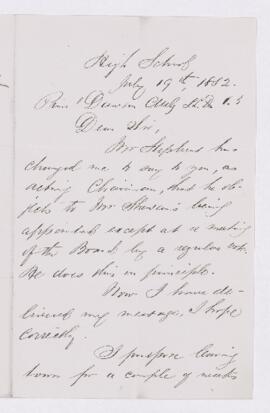 High School
July 19th, 1882.
Prin. Dawson CMG LL.D.
Dear Sir,
Mr Stephens has
charged me to say to you, as
acting Chairman, that he ob-
jects to Mr being
appointed except at a meeting
of the Board by a regular vote.
He does this in principle.
Now I have de-
livered my message, I hope
correctly.
I purpose leaving
town for a couple of weeks